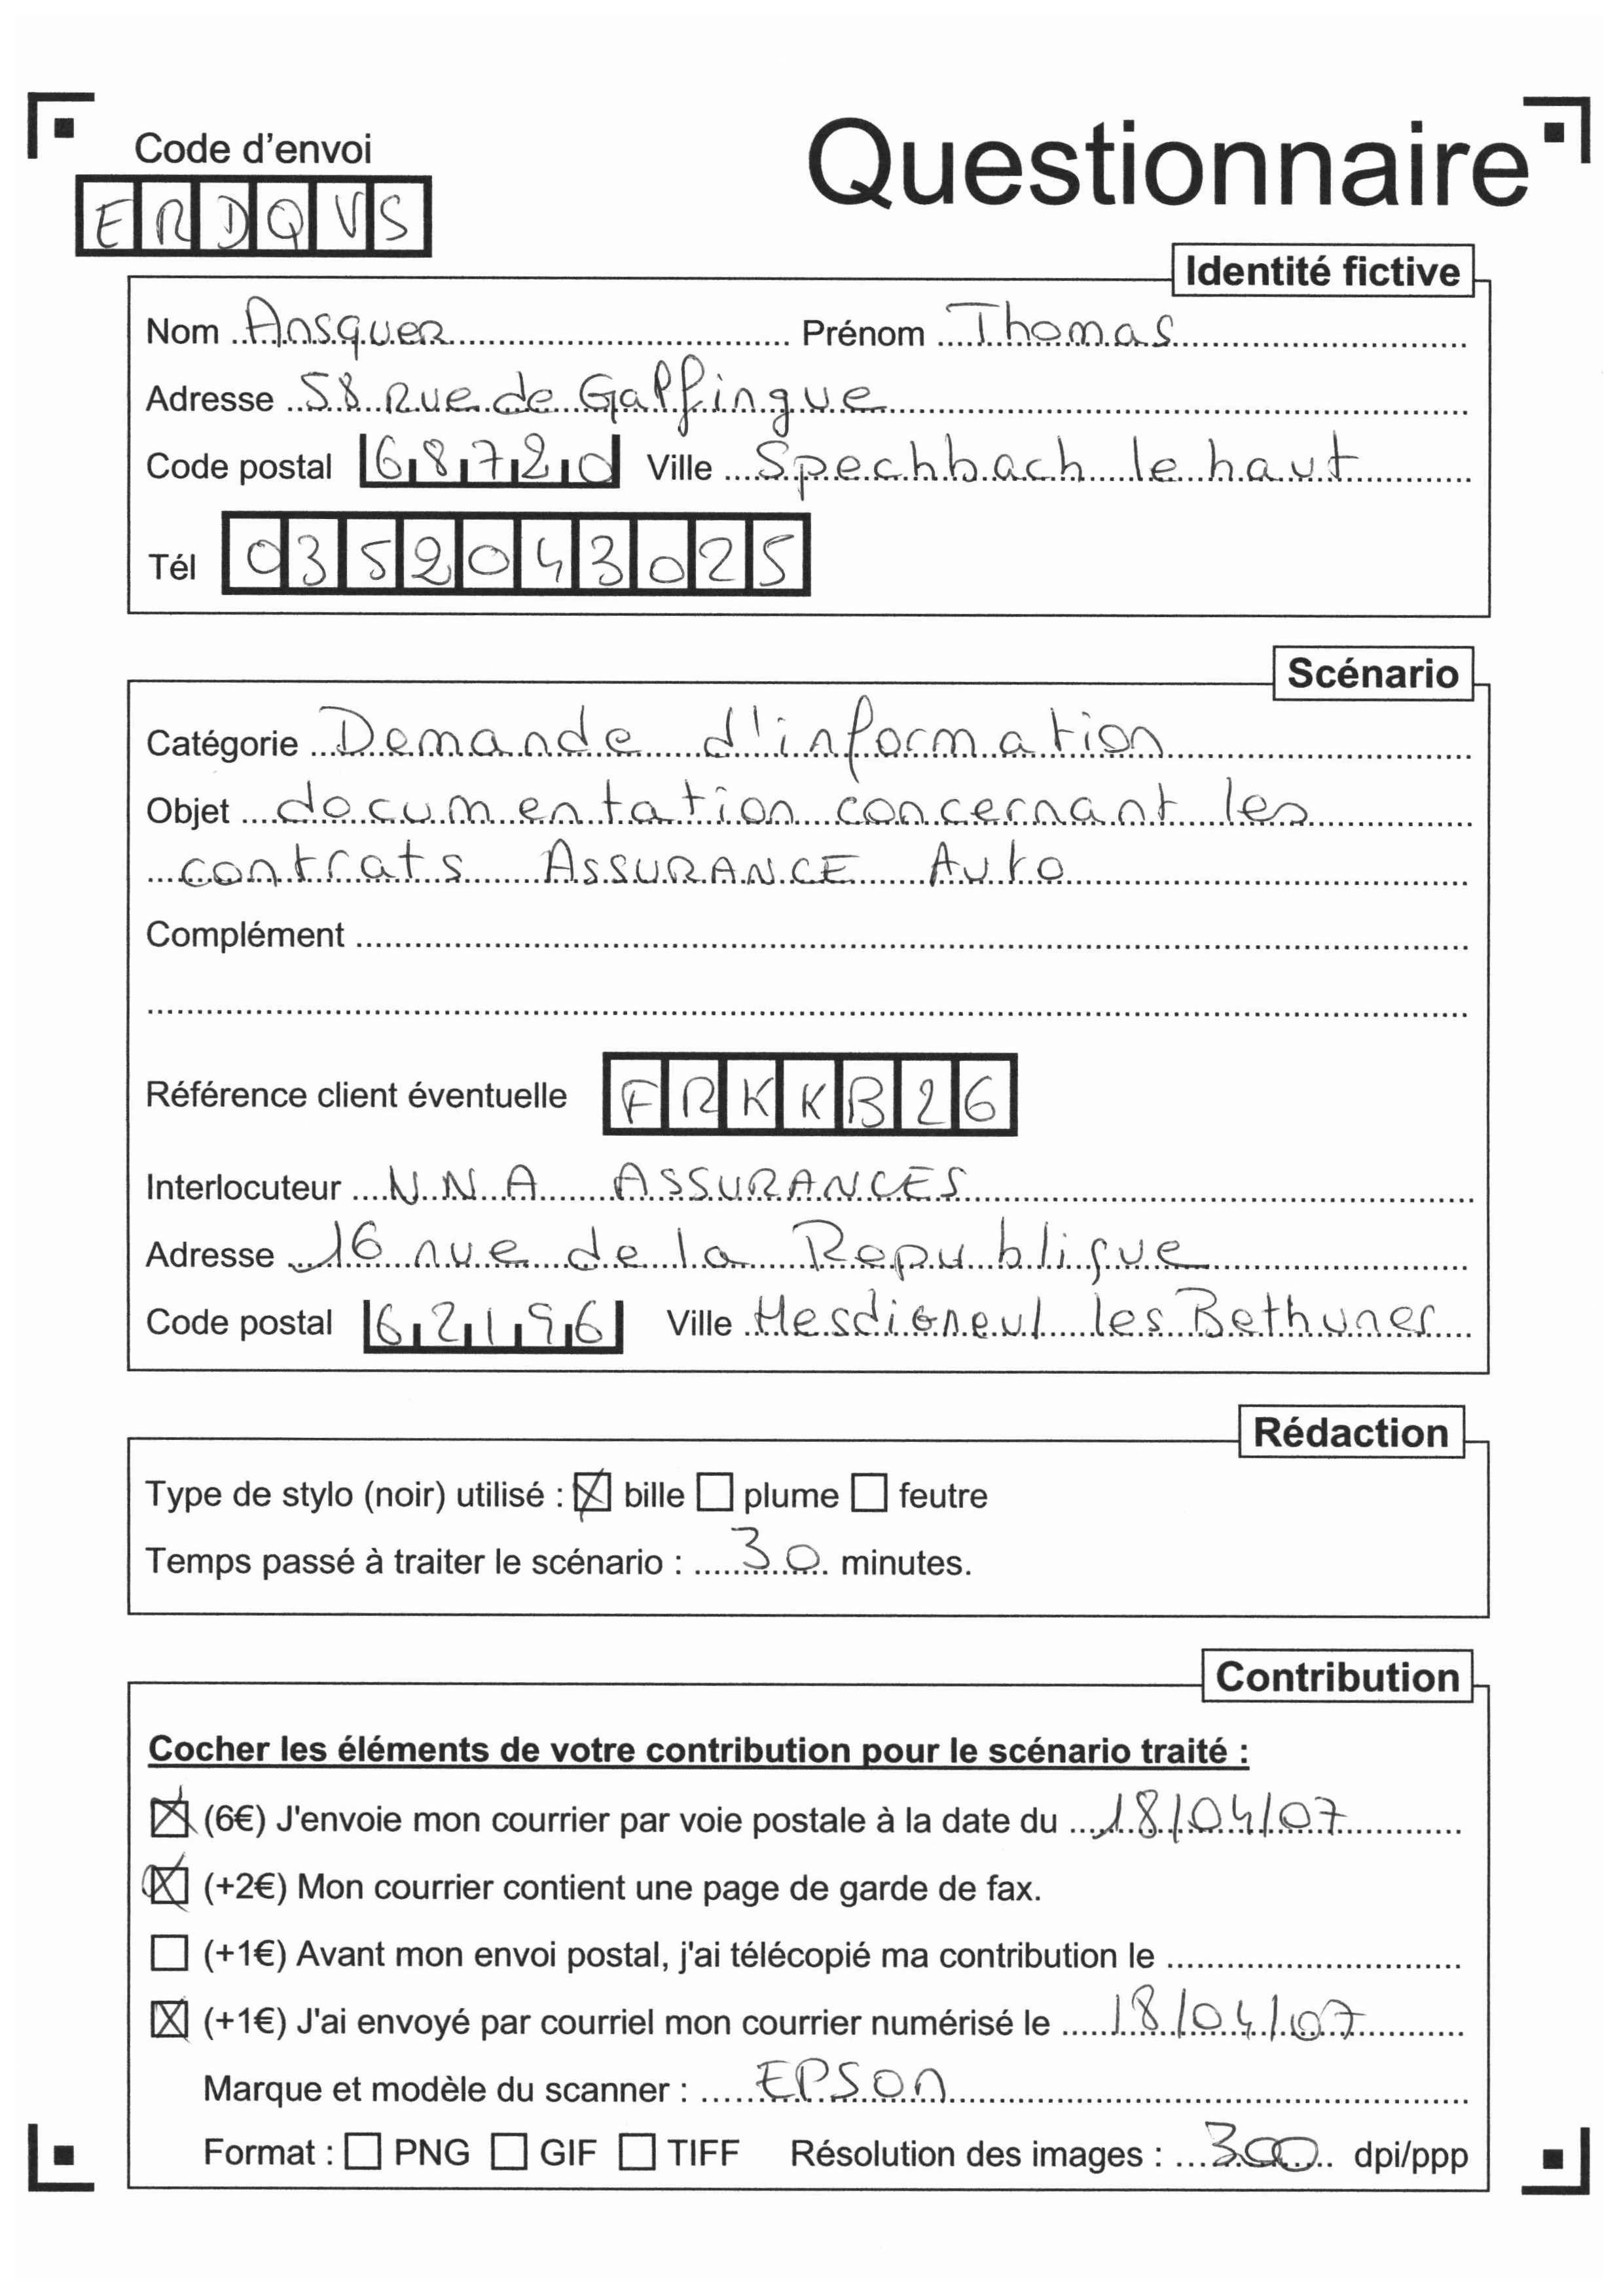 Code d'envoi
Questionnaire
ERDQVS
Identité fictive
Nom Ansquer Prénom Thomas
Adresse 58 Rue de Galfingue
Code postal 68720 Ville Spechbach le haut
Tél 0352043025
Scénario
Catégorie Demande d'information
Objet documentation concernant les
contrats ASSURANCE Auto
Complément
Référence client éventuelle FRKKB26
Interlocuteur NNA ASSURANCES
Adresse 16 rue de la Republique
Code postal 62196 Ville Hesdigneul les Bethunes
Rédaction
Type de stylo (noir) utilisé : ☒ bille ☐ plume ☐ feutre
Temps passé à traiter le scénario : 30 minutes.
Contribution
Cocher les éléments de votre contribution pour le scénario traité :
☒ (6€) J'envoie mon courrier par voie postale à la date du 18/04/07
☒ (+2€) Mon courrier contient une page de garde de fax.
☐ (+1€) Avant mon envoi postal, j'ai télécopié ma contribution le
☒ (+1€) J'ai envoyé par courriel mon courrier numérisé le 18/04/07
Marque et modèle du scanner : EPSON
Format : ☐ PNG ☐ GIF ☐ TIFF Résolution des images : 300 dpi/ppp